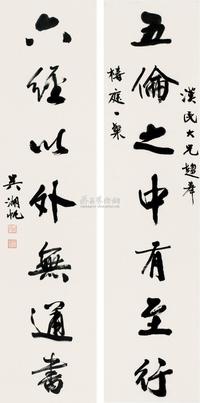 漢民大兄趨奉
椿庭一粲
五倫之中有至行
六經以外無通書
吳湖帆